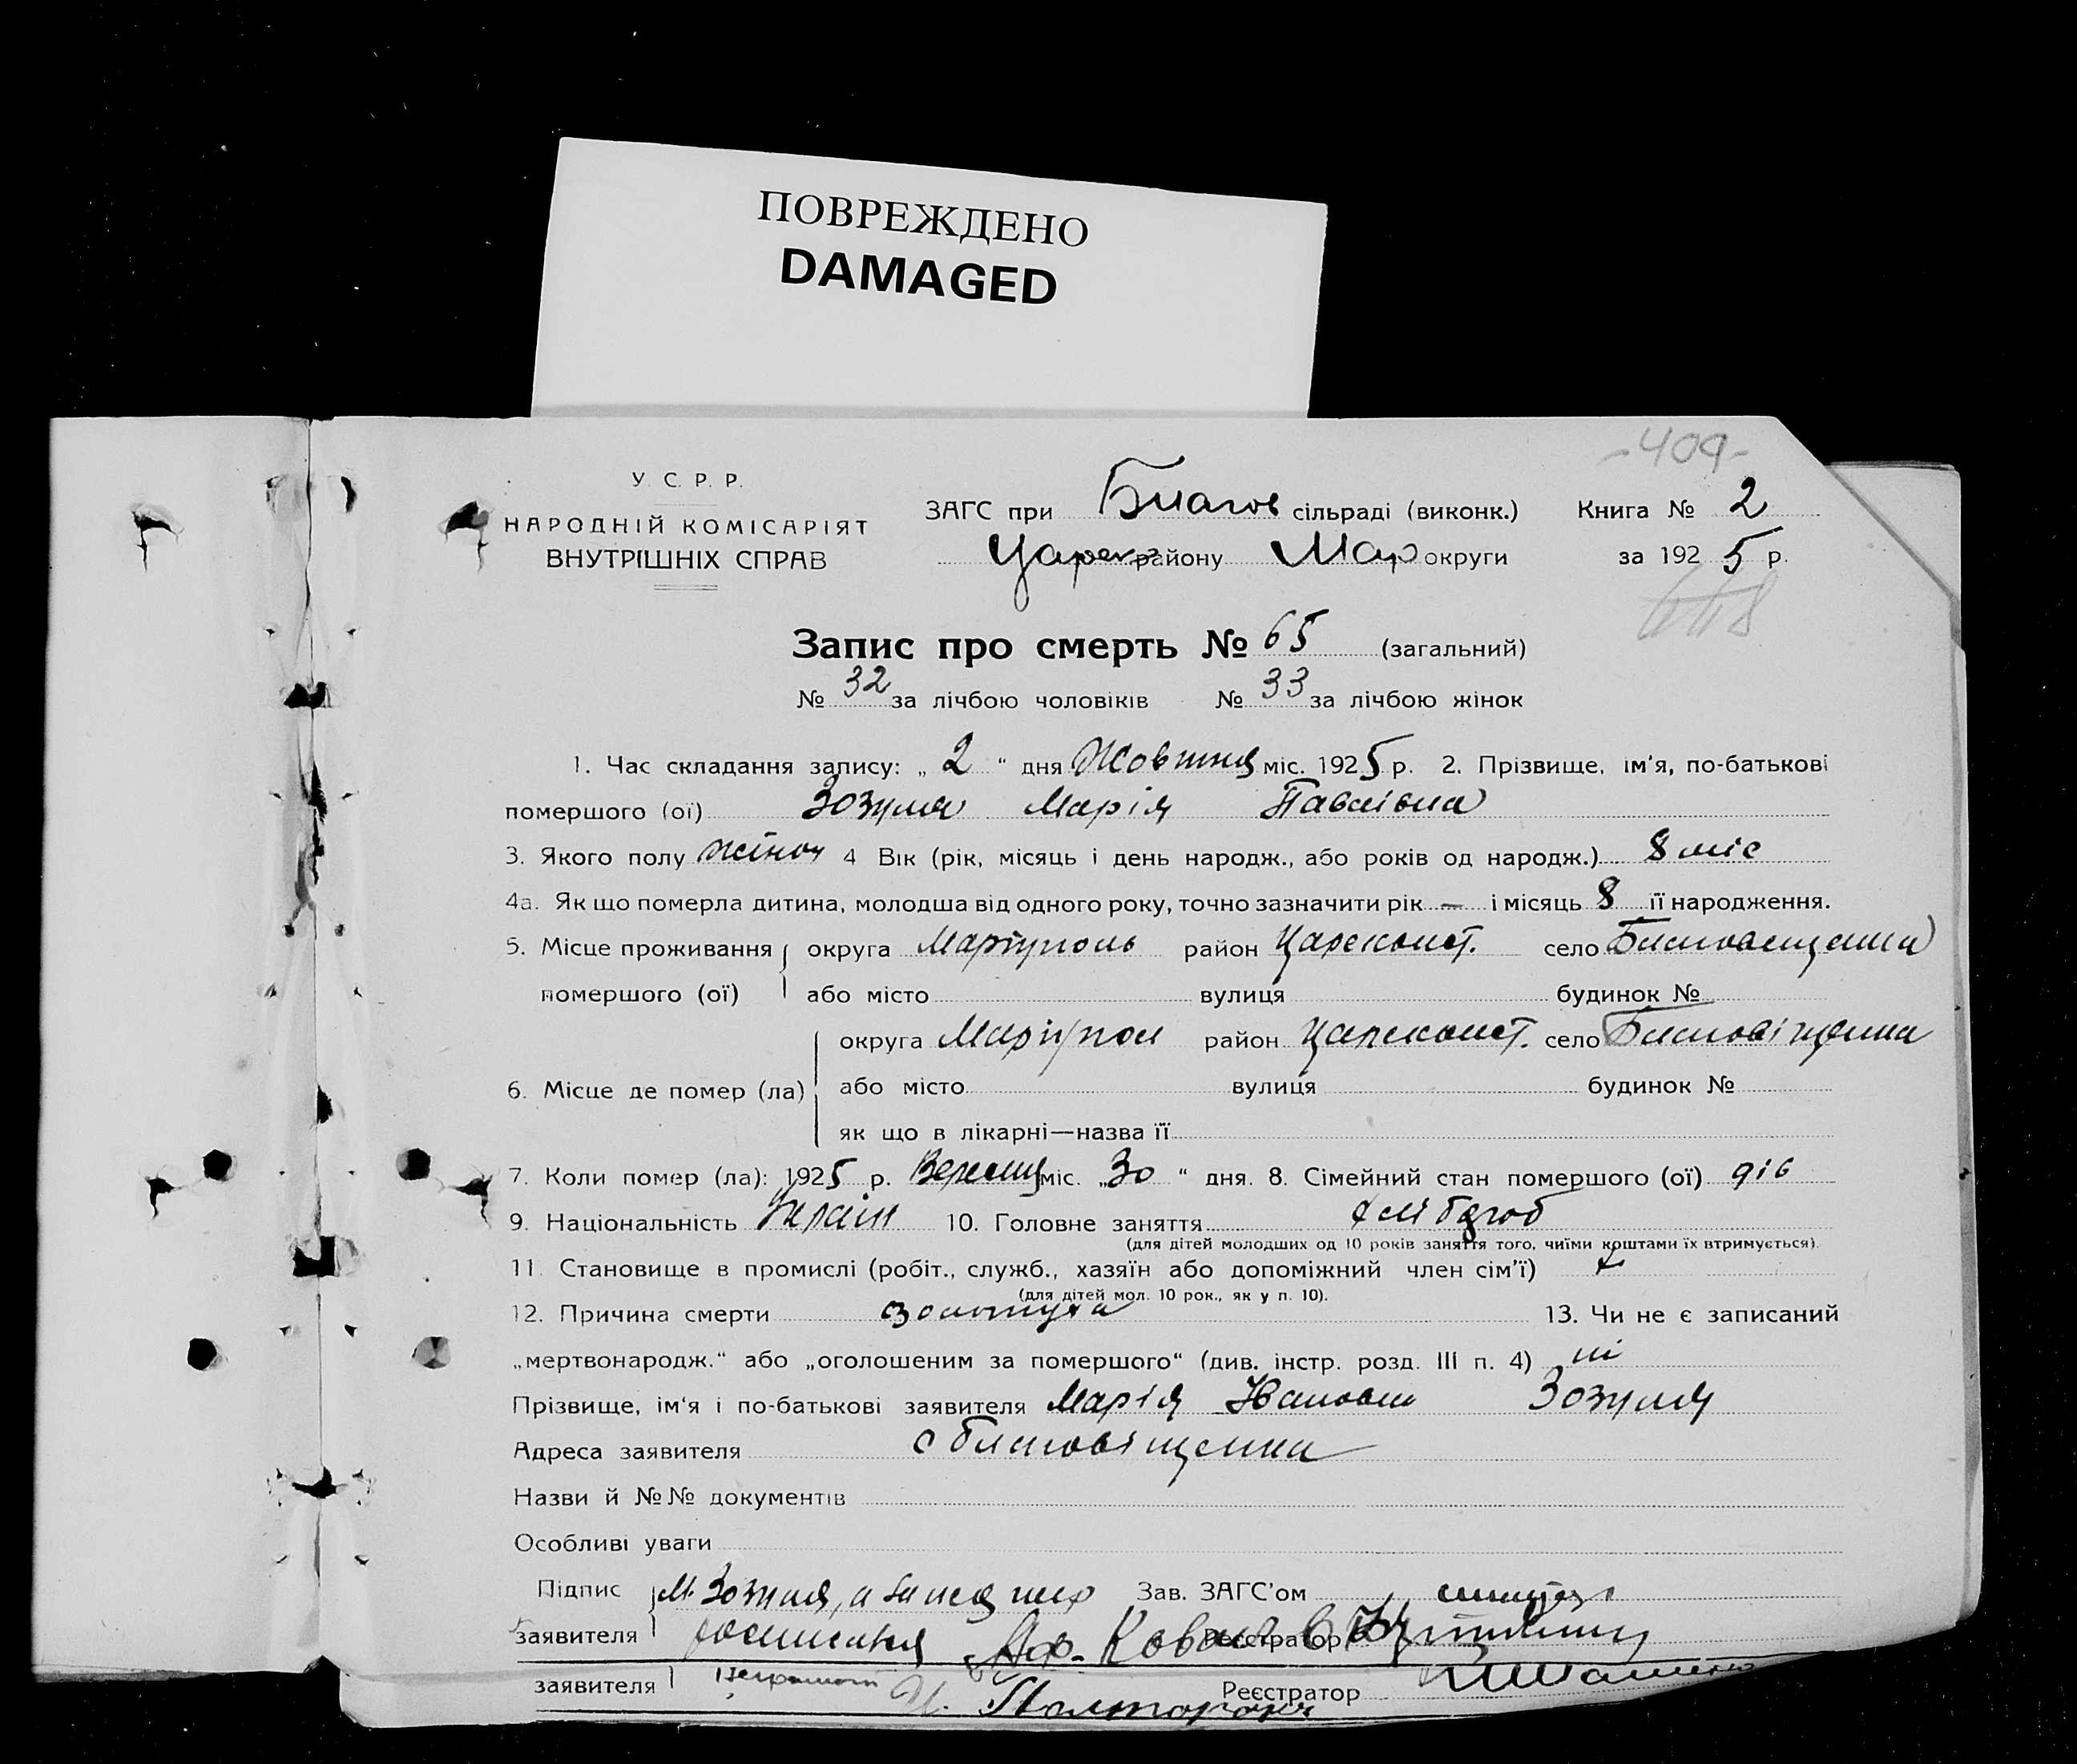 ПОВРЕЖДЕНО
DAMAGED
-409-
У. С. Р. Р.
НАРОДНІЙ КОМІСАРІЯТ
ВНУТРІШНІХ СПРАВ
ЗАГС при Благов сільраді (виконк.) Книга № 2
Царек району Мар округи за 1925 р.
Запис про смерть № 65 (загальний)
№ 32 за лічбою чоловіків № 33 за лічбою жінок
1. Час складання запису: „2“ дня Жовтня міс. 1925 р. 2. Прізвище, ім'я, по-батькові
помершого (ої) Зозуля Марія Павлівна
3. Якого полу жіноч 4 Вік (рік, місяць і день народж., або років од народж.) 8 міс
4а. Як що померла дитина, молодша від одного року, точно зазначити рік — і місяць 8 її народження.
5. Місце проживання округа Маріуполь район Цареконст. село Благовещенка
помершого (ої) або місто вулиця будинок №
округа Маріупол район Цареконст. село Благовіщенка
6. Місце де помер (ла) або місто вулиця будинок №
як що в лікарні—назва її
7. Коли помер (ла): 1925 р. Вересня міс. „30“ дня. 8. Сімейний стан помершого (ої) дів
9. Національність Україн 10. Головне заняття хлібороб
(для дітей молодших од 10 років заняття того, чиїми коштами їх втримується).
11. Становище в промислі (робіт., служб., хазяїн або допоміжний член сім'ї) х
(для дітей мол. 10 рок., як у п. 10).
12. Причина смерти золотуха 13. Чи не є записаний
„мертвонародж.“ або „оголошеним за помершого“ (див. інстр. розд. III п. 4) ні
Прізвище, ім'я і по-батькові заявителя Марія Ивановна Зозуля
Адреса заявителя с Благовіщенка
Назви й №№ документів
Особливі уваги
Підпис М. Зозуля, а за нея Зав. ЗАГС'ом
заявителя Аф. Ковал Реєстратор
заявителя Неграмот Реєстратор
И. Полторак